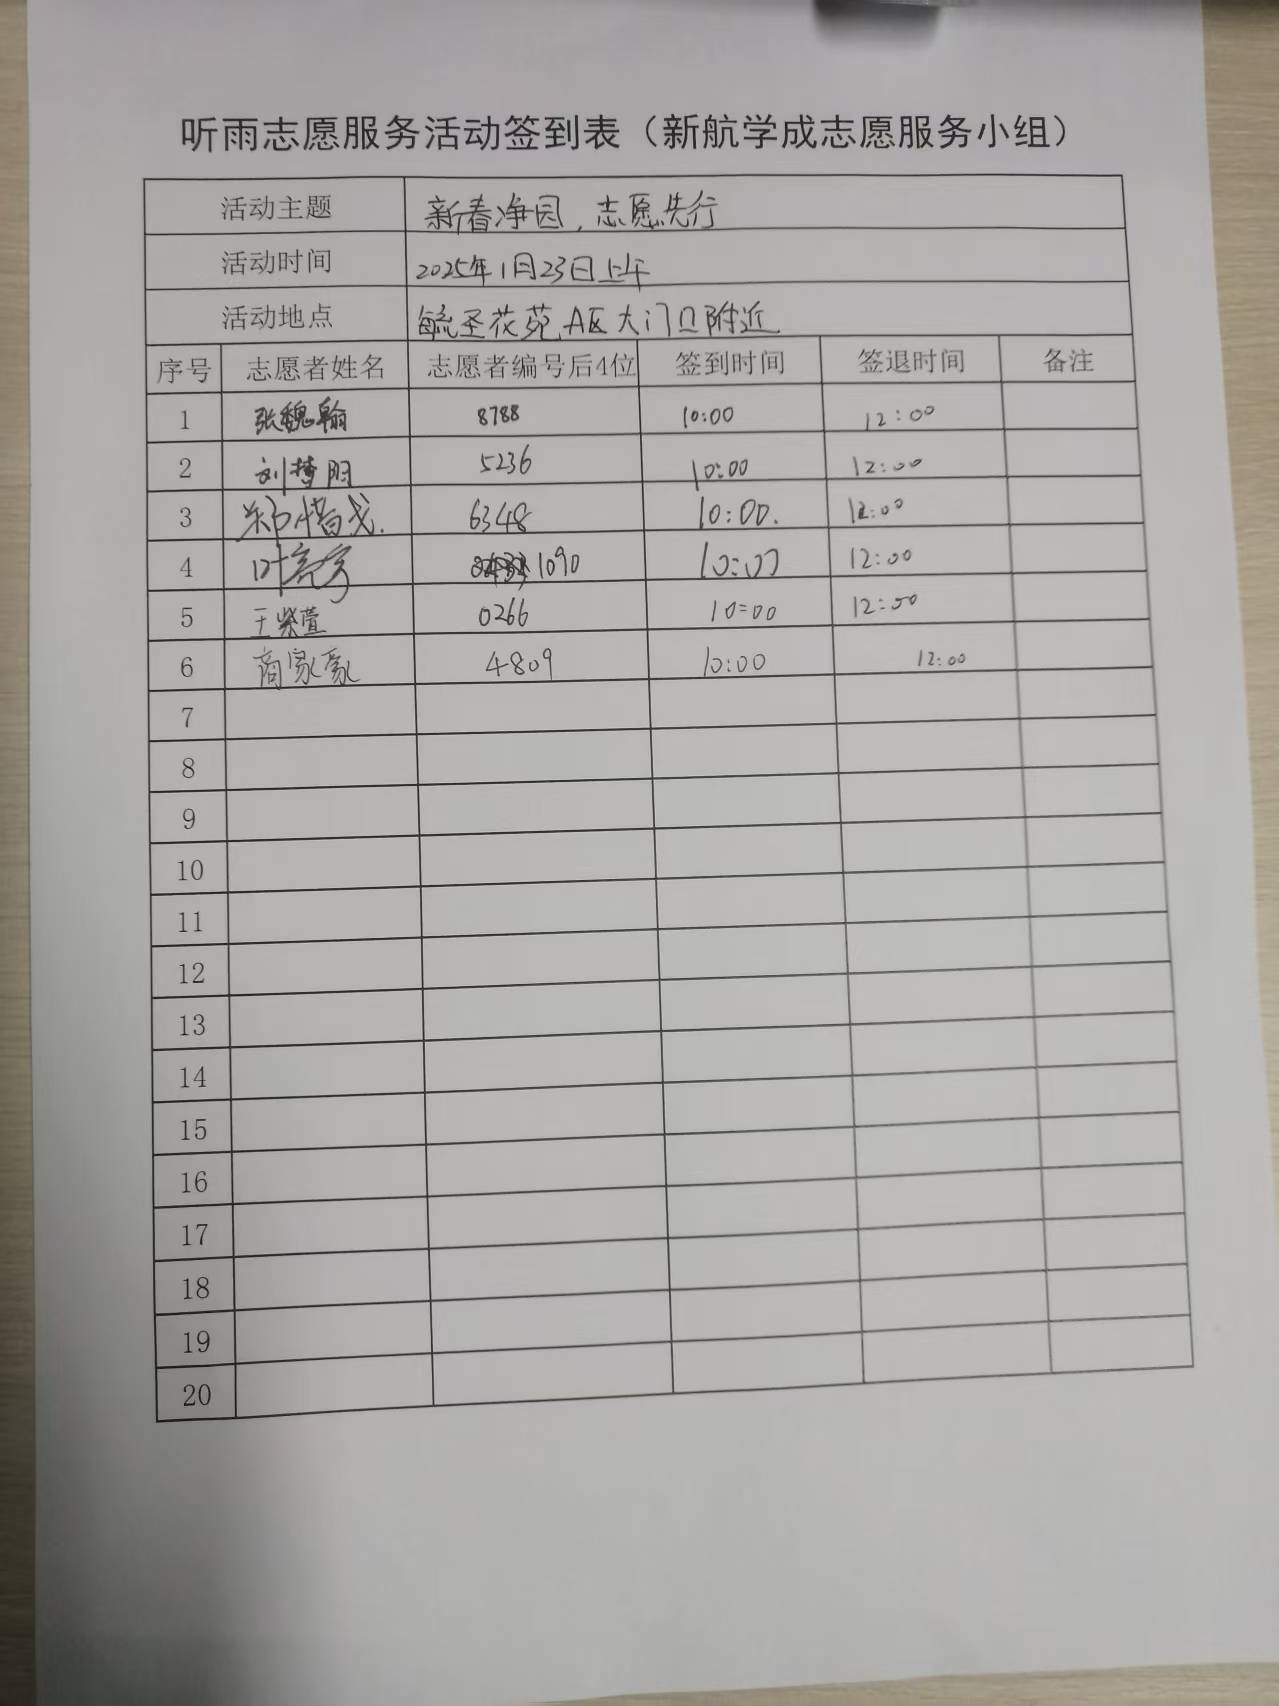 听雨志愿服务活动签到表（新航学成志愿服务小组）
活动主题 新春净园，志愿先行
活动时间 2025年1月23日上午
活动地点 毓圣花苑A区大门口附近
序号 志愿者姓名 志愿者编号后4位 签到时间 签退时间 备注
1 张魏翰 8788 10:00 12:00
2 刘楚明 5236 10:00 12:00
3 郑惜戈. 6348 10:00. 12:00
4 叶 1090 10:00 12:00
5 王紫萱 0266 10:00 12:00
6 商家豪 4809 10:00 12:00
7
8
9
10
11
12
13
14
15
16
17
18
19
20